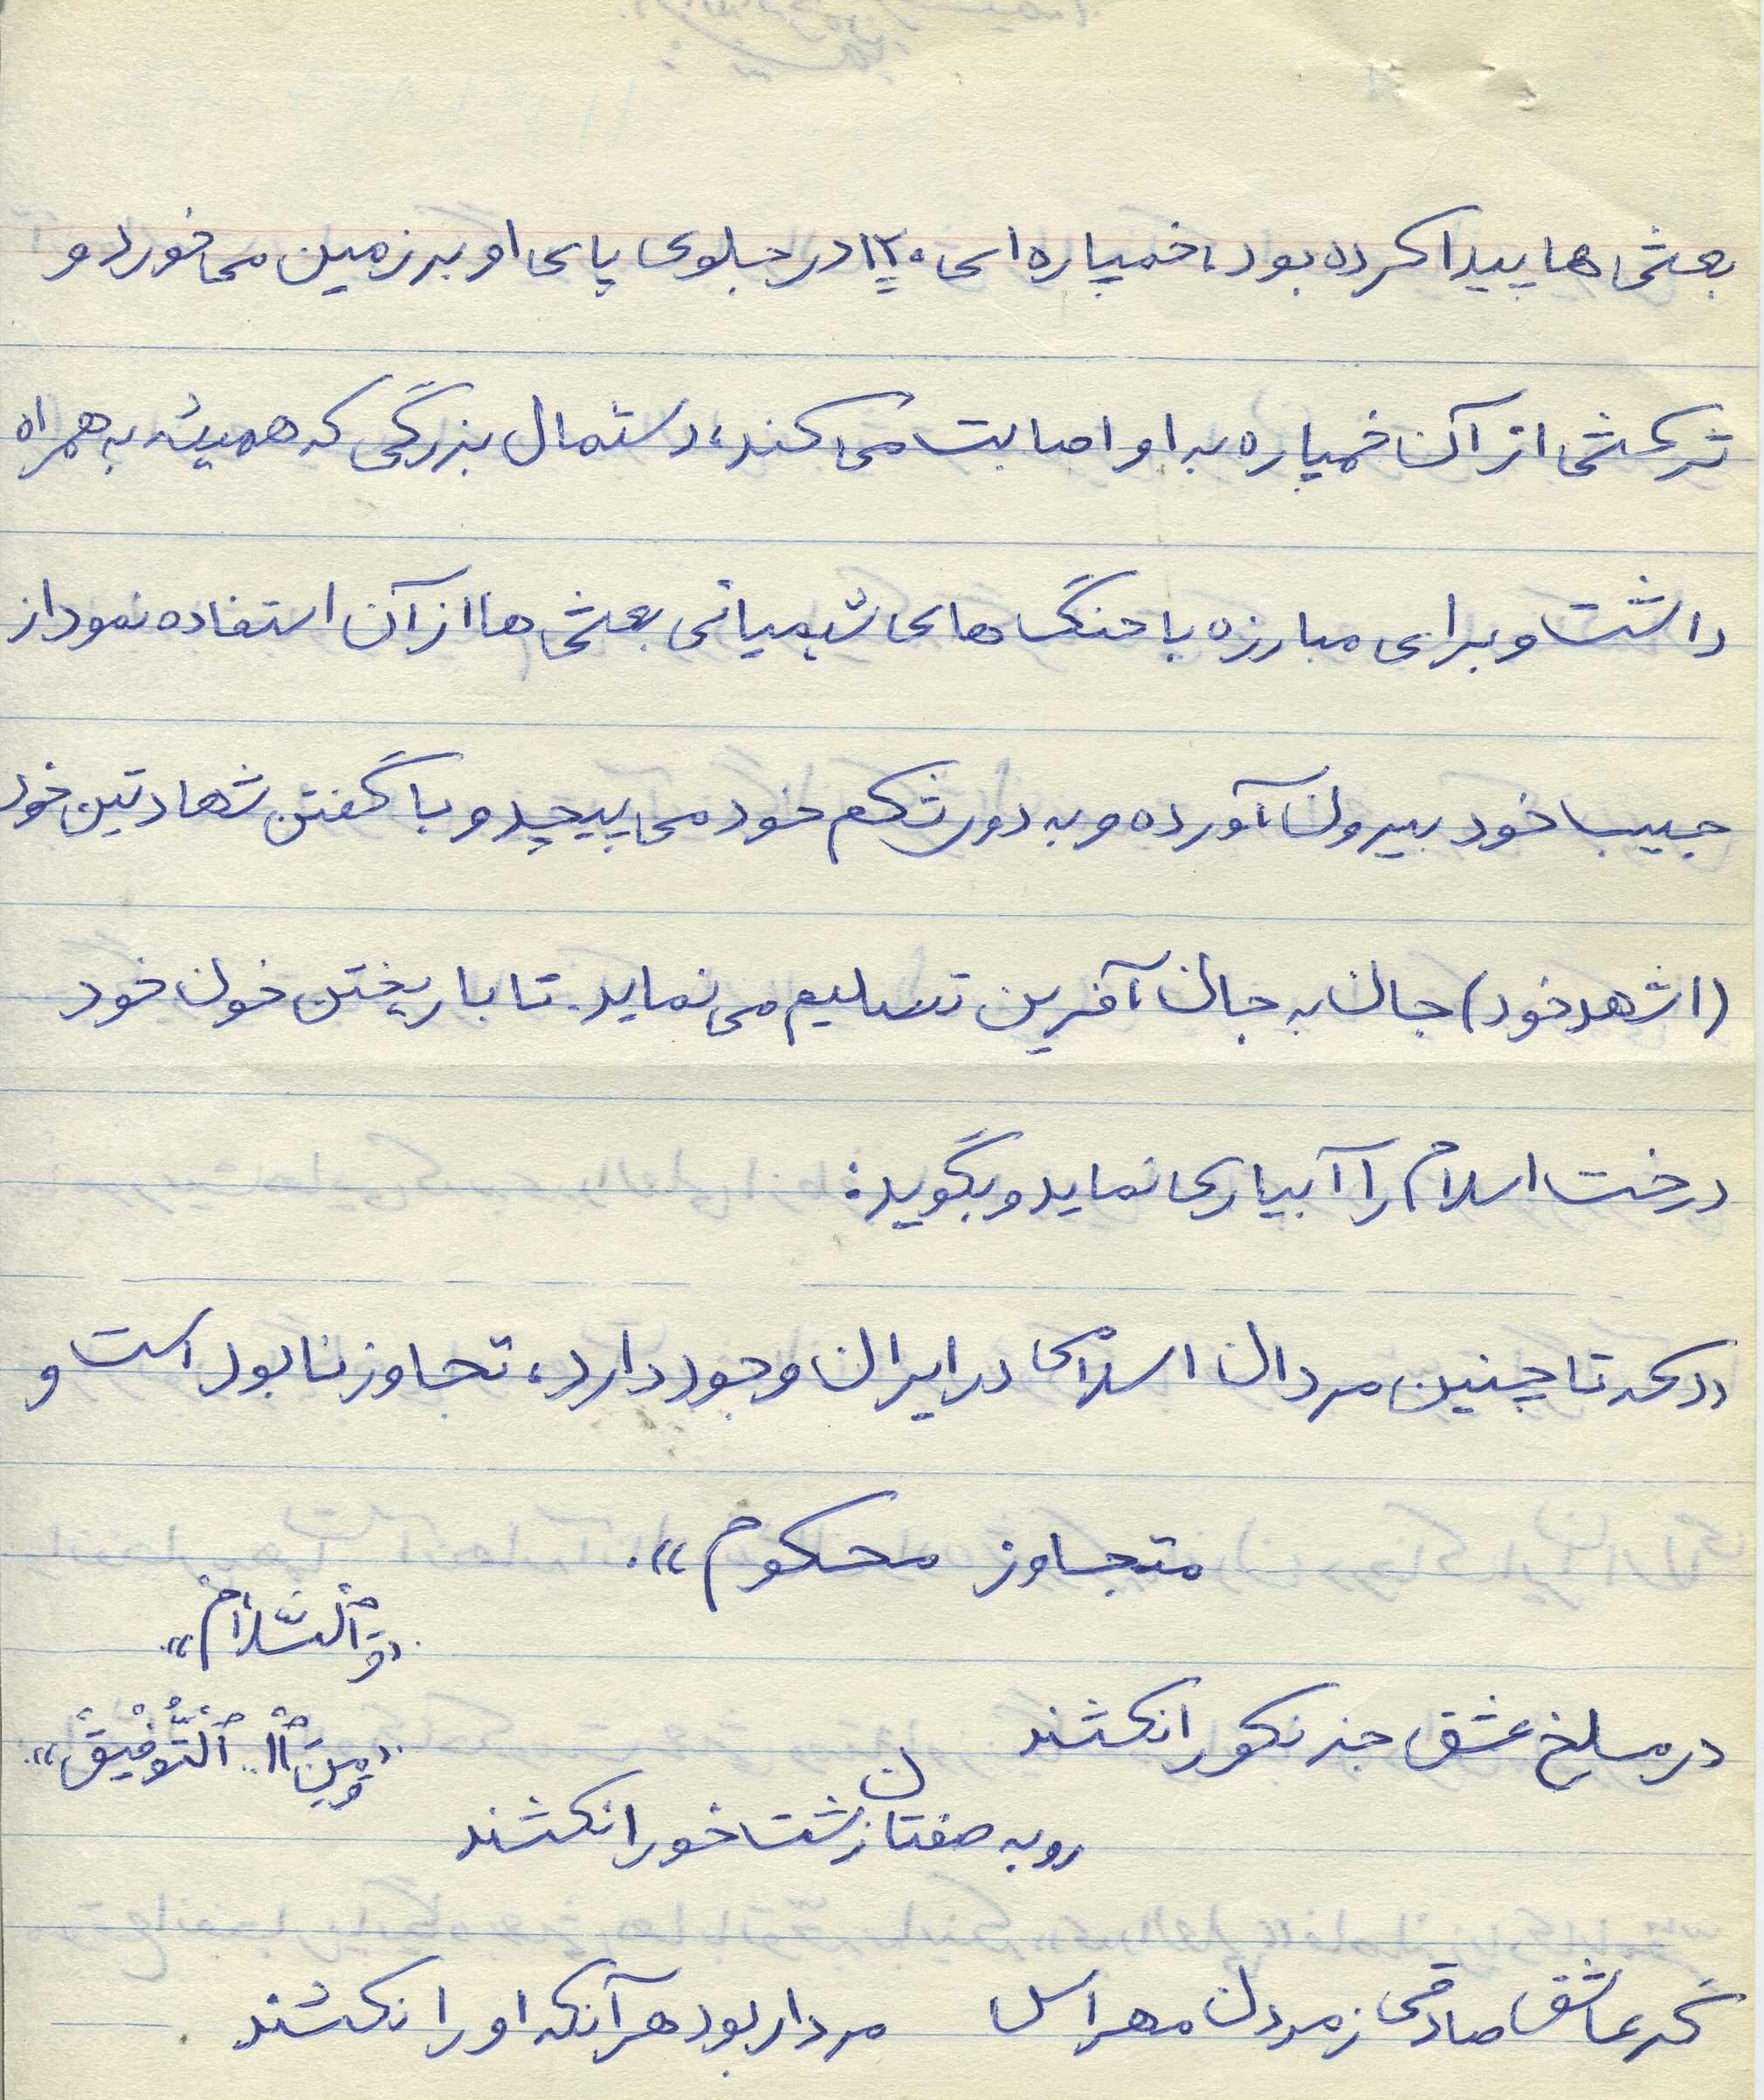 بعثی ها پیدا کرده بود، خمپاره ای ۱۲۰ در جلوی پای او به زمین می خورد و
ترکشی از آن خمپاره به او اصابت می کند، دستمال بزرگی که همیشه به همراه
داشت و برای مبارزه با جنگ های شیمیائی بعثی ها از آن استفاده نمود از
جیب خود بیرون آورده و به دور شکم خود می پیچد و با گفتن شهادتین خود
(اشهد خود) جان به جان آفرین تسلیم می نماید. تا با ریختن خون خود
درخت اسلام را آبیاری نماید و بگوید:
«که تا چنین مردان اسلامی در ایران وجود دارد، تجاوز نابود است و
متجاوز محکوم».
«وَٱلسَّلامُ»
«وَمِنَ ٱ... ٱلتَّوْفِيقُ»
در مسلخ عشق جز نکو را نکشند
روبه صفتان زشت خو را نکشند
گر عاشق صادقی ز مردن مهراس مردار بود هر آنکه او را نکشند